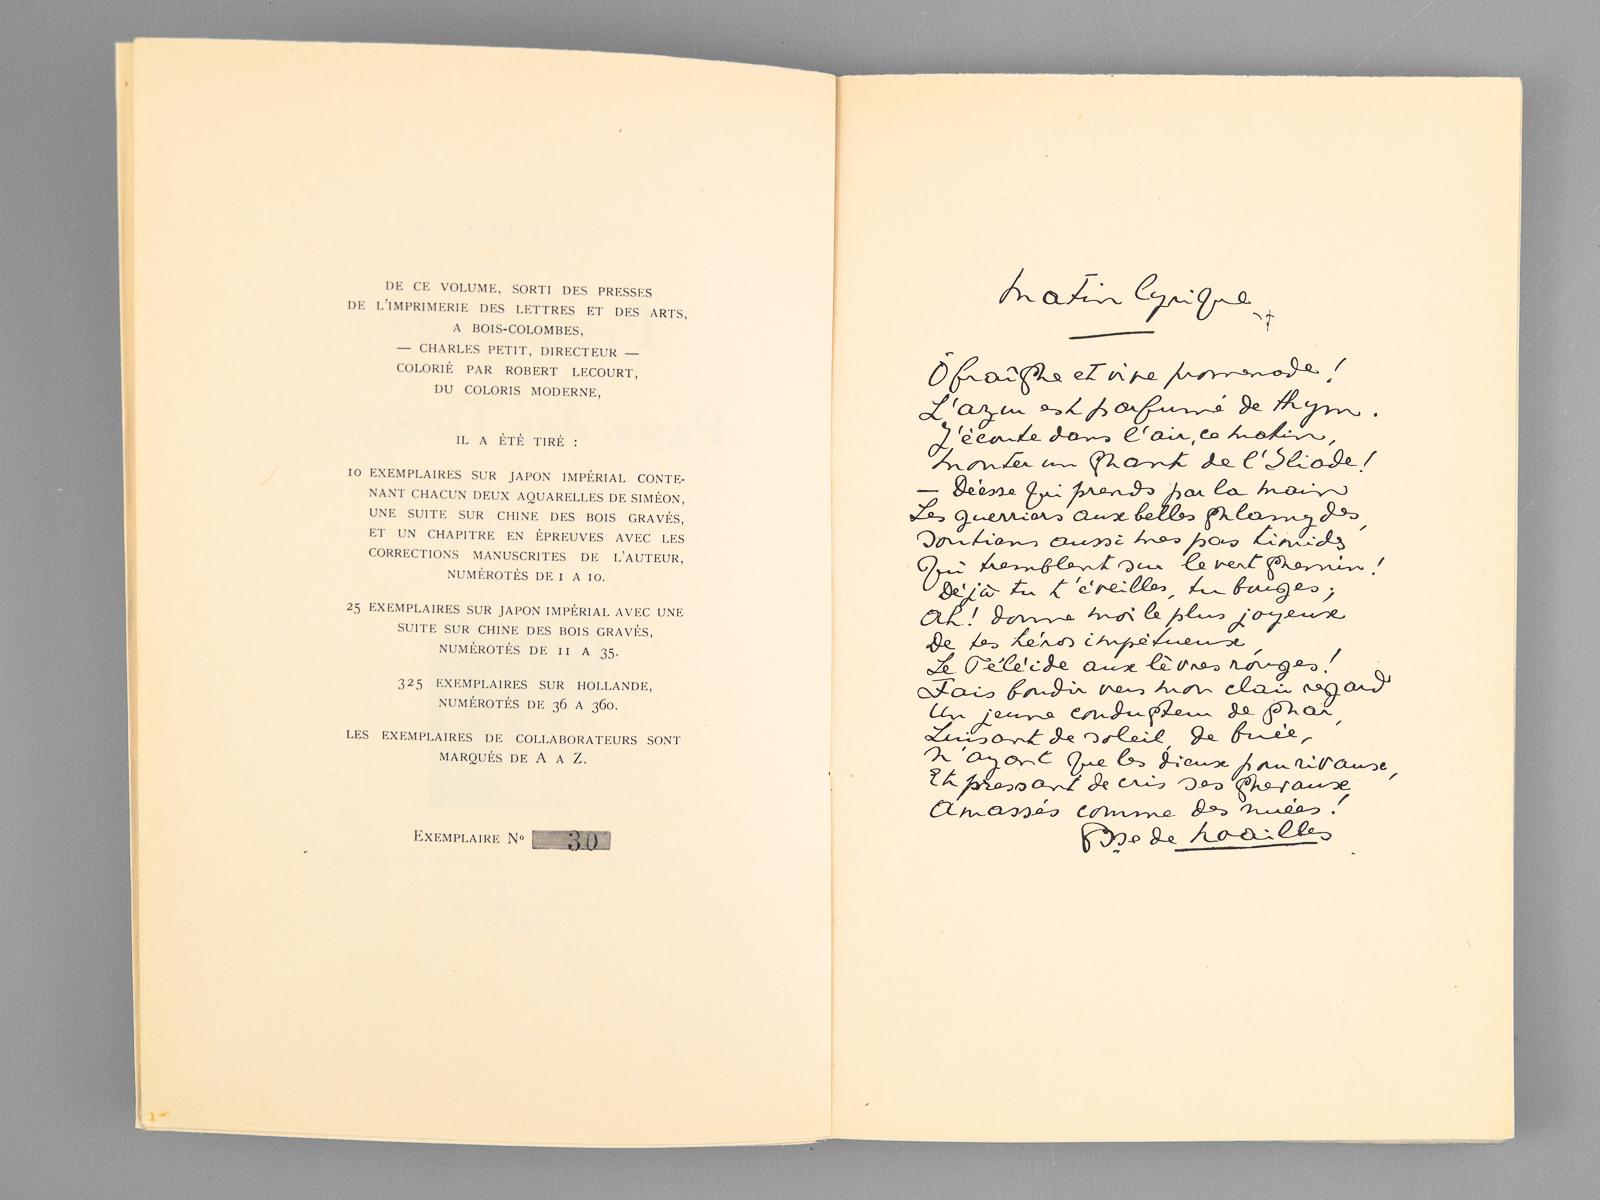 DE CE VOLUME, SORTI DES PRESSES
DE L'IMPRIMERIE DES LETTRES ET DES ARTS,
A BOIS-COLOMBES,
— CHARLES PETIT, DIRECTEUR —
COLORIÉ PAR ROBERT LECOURT,
DU COLORIS MODERNE,
IL A ÉTÉ TIRÉ :
10 EXEMPLAIRES SUR JAPON IMPÉRIAL CONTE-
NANT CHACUN DEUX AQUARELLES DE SIMÉON,
UNE SUITE SUR CHINE DES BOIS GRAVÉS,
ET UN CHAPITRE EN ÉPREUVES AVEC LES
CORRECTIONS MANUSCRITES DE L'AUTEUR,
NUMÉROTÉS DE 1 A 10.
25 EXEMPLAIRES SUR JAPON IMPÉRIAL AVEC UNE
SUITE SUR CHINE DES BOIS GRAVÉS,
NUMÉROTÉS DE 11 A 35.
325 EXEMPLAIRES SUR HOLLANDE,
NUMÉROTÉS DE 36 A 360.
LES EXEMPLAIRES DE COLLABORATEURS SONT
MARQUÉS DE A A Z.
EXEMPLAIRE Nº 30
Matin lyrique
Ô fraîche et vive promenade !
L'azur est parfumé de thym.
J'écoute dans l'air, ce matin,
Monter un chant de l'Iliade !
— Déesse qui prends par la main
Les guerriers aux belles chlamydes,
Soutiens aussi mes pas timides
Qui tremblent sur le vert chemin !
Déjà tu t'éveilles, tu bouges ;
Ah ! donne moi le plus joyeux
De tes héros impétueux,
Le Péléide aux lèvres rouges !
Fais bondir vers mon clair regard
Un jeune conducteur de char,
Luisant de soleil, de buée,
N'ayant que les dieux pour rivaux,
Et pressant de cris ses chevaux
Amassés comme des nuées !
Csse de Noailles